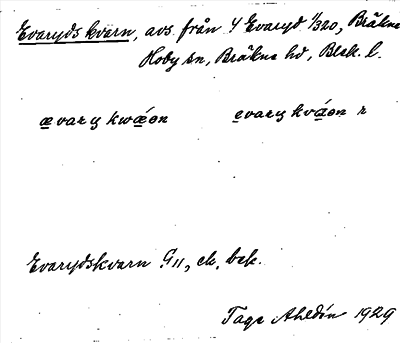 Evaryds kvarn, avs. från 4 Evaryd 1/320, Bräkne
Hoby sn, Bräkne hd, Blek. l.
ævary kwǽɵn evary kváɵn r
Evarydskvarn G11, ek. bek.
Tage Ahldén 1929